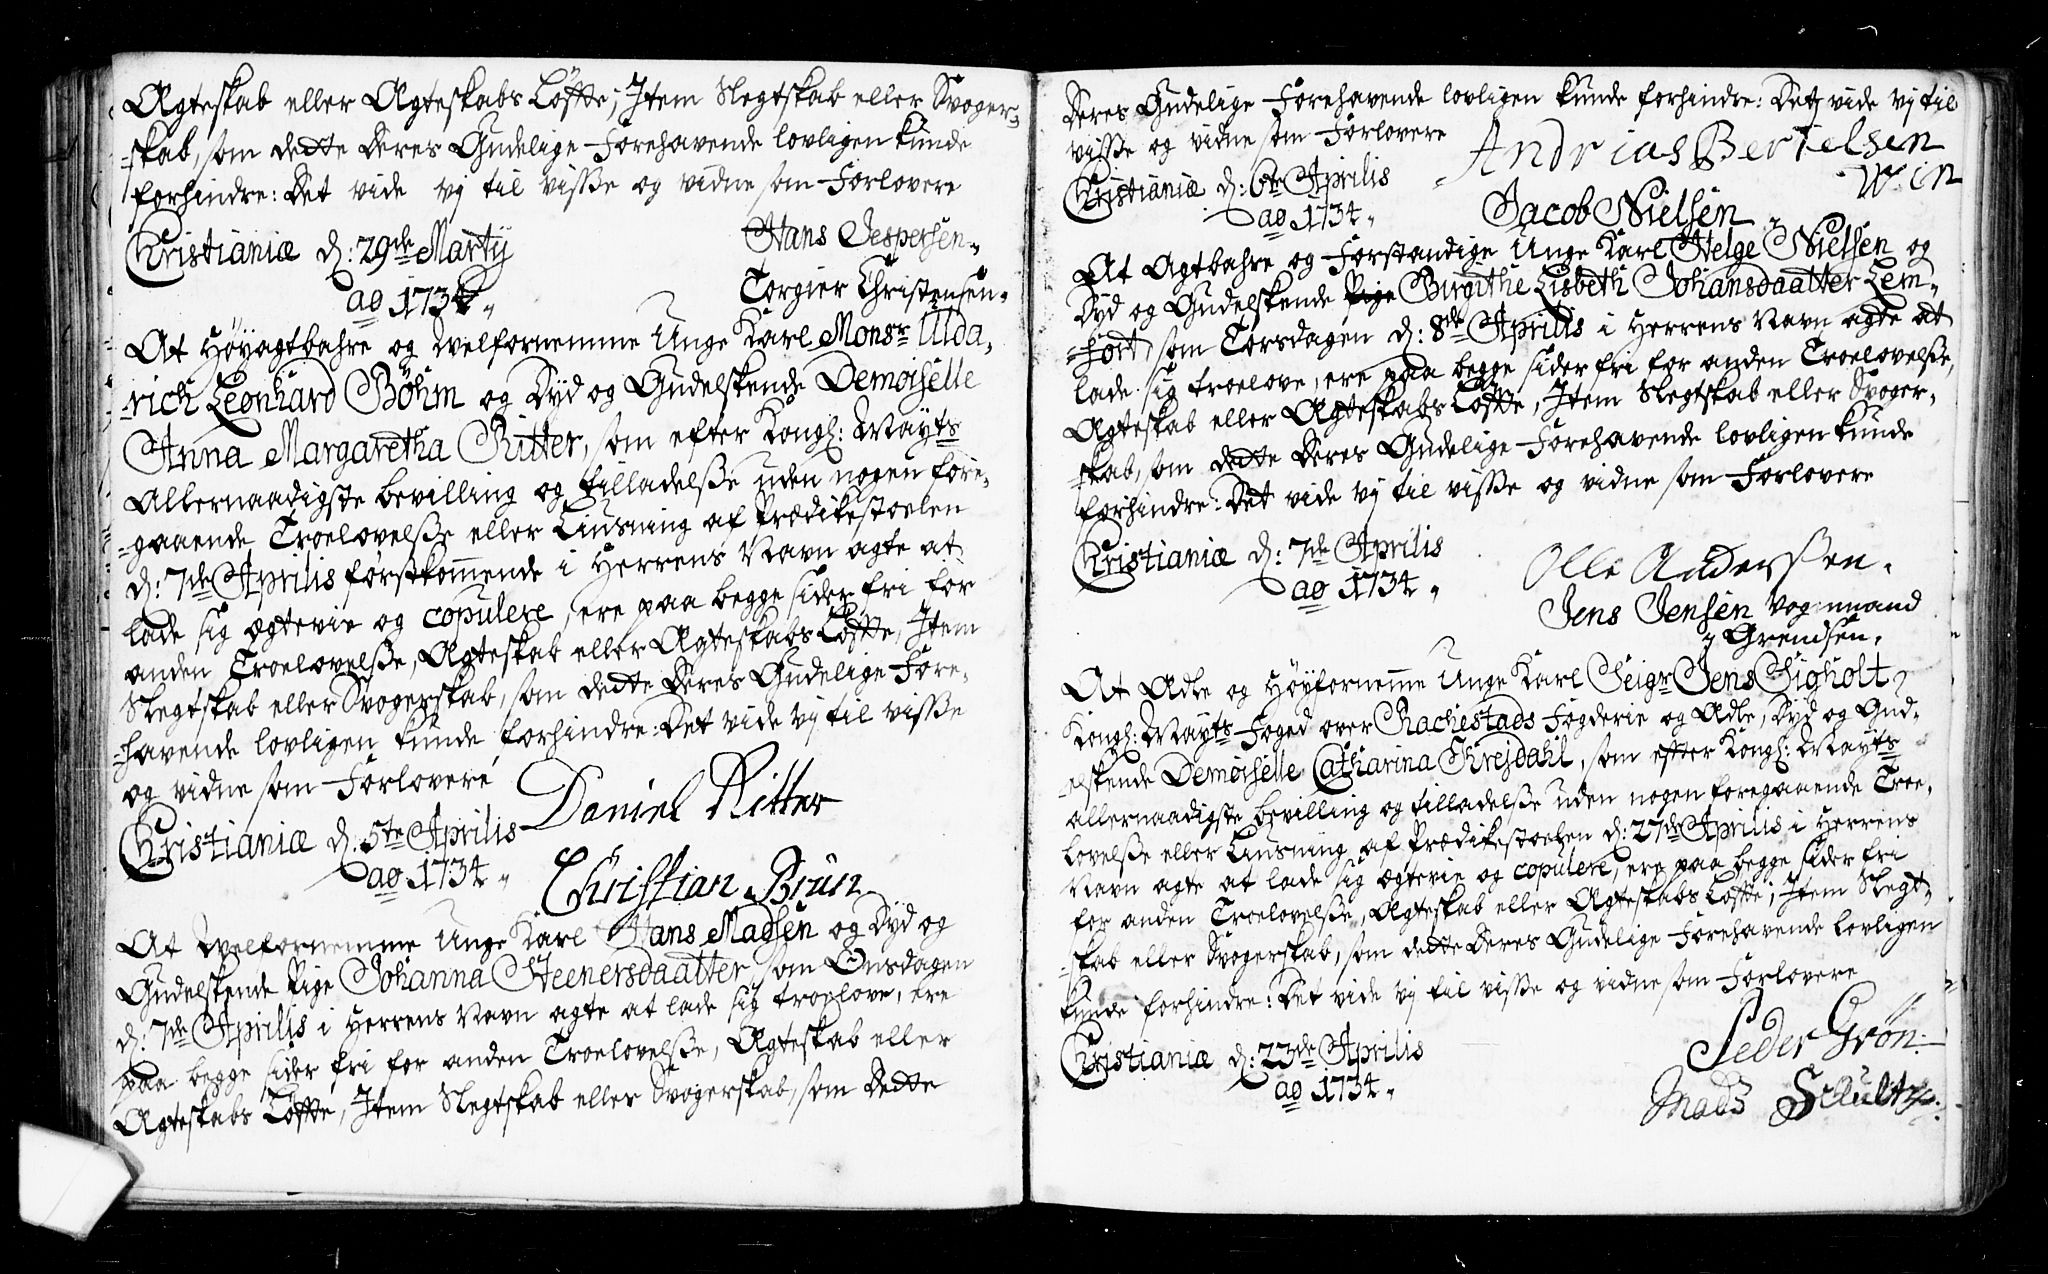 Ægteskab eller Ægteskabs Löffte; Item Slegtskab eller Svoger-
-skab, som dette deres Gudelige Forehavende lovligen kunde
forhindre: Det vide vj til visße og vidne som Forlovere
Christianiæ d: 29de Martij
ao 1734.
Hans Jespersen.
Torgier Christensen.
At Höyagtbahre og Welfornemme Unge Karl Monsr Ulda-
-rich Leonhard Böhm og Dyd og Gudelskende Demoiselle
Anna Margaretha Ritter, som efter Kongl: Mayts
Allernaadigste bevilling og tilladelße uden nogen fore-
-gaaende Troelovelße eller Liusning af Prædikestoelen
d: 7de Aprilis förstkommende i Herrens Navn agte at
lade sig ægtevie og copulere, ere paa begge sider fri for
anden Troelovelße, Ægteskab eller Ægteskabs Löffte, Item
Slegtskab eller Svogerskab, som dette deres Gudelige Fore-
-havende lovligen kunde forhindre: Det vide vj til visße
og vidne som Forlovere
Daniel Ritter
Christianiæ d: 5te Aprilis
ao 1734.
Christian Brun
At Welfornemme Unge Karl Hans Madsen og Dyd og
Gudelskende Pige Johanna Steenersdaatter, som Onsdagen
d: 7de Aprilis i Herrens Navn agte at lade sig troelove, ere
paa begge sider fri for anden Troelovelße, Ægteskab eller
Ægteskabs Löffte, Item Slegtskab eller Svogerskab, som dette
deres Gudelige Forehavende lovligen kunde forhindre: Det vide vj til
visße og vidne som Forlovere
Andrias Bertelsen
Win
Christianiæ d: 6te Aprilis
ao 1734.
Jacob Nielsen
At Agtbahre og Forstandige Unge Karl Helge Nielsen og
Dyd og Gudelskende Pige Birgithe Lisbeth Johansdaatter Lem-
-fort, som Torsdagen d: 8de Aprilis i Herrens Navn agte at
lade sig troelove, ere paa begge sider fri for anden Troelovelße,
Ægteskab eller Ægteskabs Löffte, Item Slegtskab eller Svoger-
-skab, som dette deres Gudelige Forehavende lovligen kunde
forhindre: Det vide vj til visße og vidne som Forlovere
Christianiæ d: 7de Aprilis
ao 1734.
Olle Anderssen.
Jens Jensen Vognmand
y Grendsen.
At Ædle og Höyfornemme Unge Karl Seigr Jens Sigholt,
Kongl: Mayts Foged over Rachestads Fogderie og Ædle, Dyd og Gud-
-elskende Demoiselle Catharina Krejdahl, som efter Kongl: Mayts
allernaadigste bevilling og tilladelße uden nogen foregaaende Troe-
lovelße eller Liusning af Prædikestoelen d: 27de Aprilis i Herrens
Navn agte at lade sig ægtevie og copulere, ere paa begge sider fri
for anden Troelovelße, Ægteskab eller Ægteskabs Löffte; Item Slegt-
-skab eller Svogerskab, som dette deres Gudelige Forehavende lovligen
kunde forhindre: Det vide vj til visße og vidne som Forlovere
Christianiæ d: 23de Aprilis
ao 1734.
Peder Grön.
Mads Schultz.